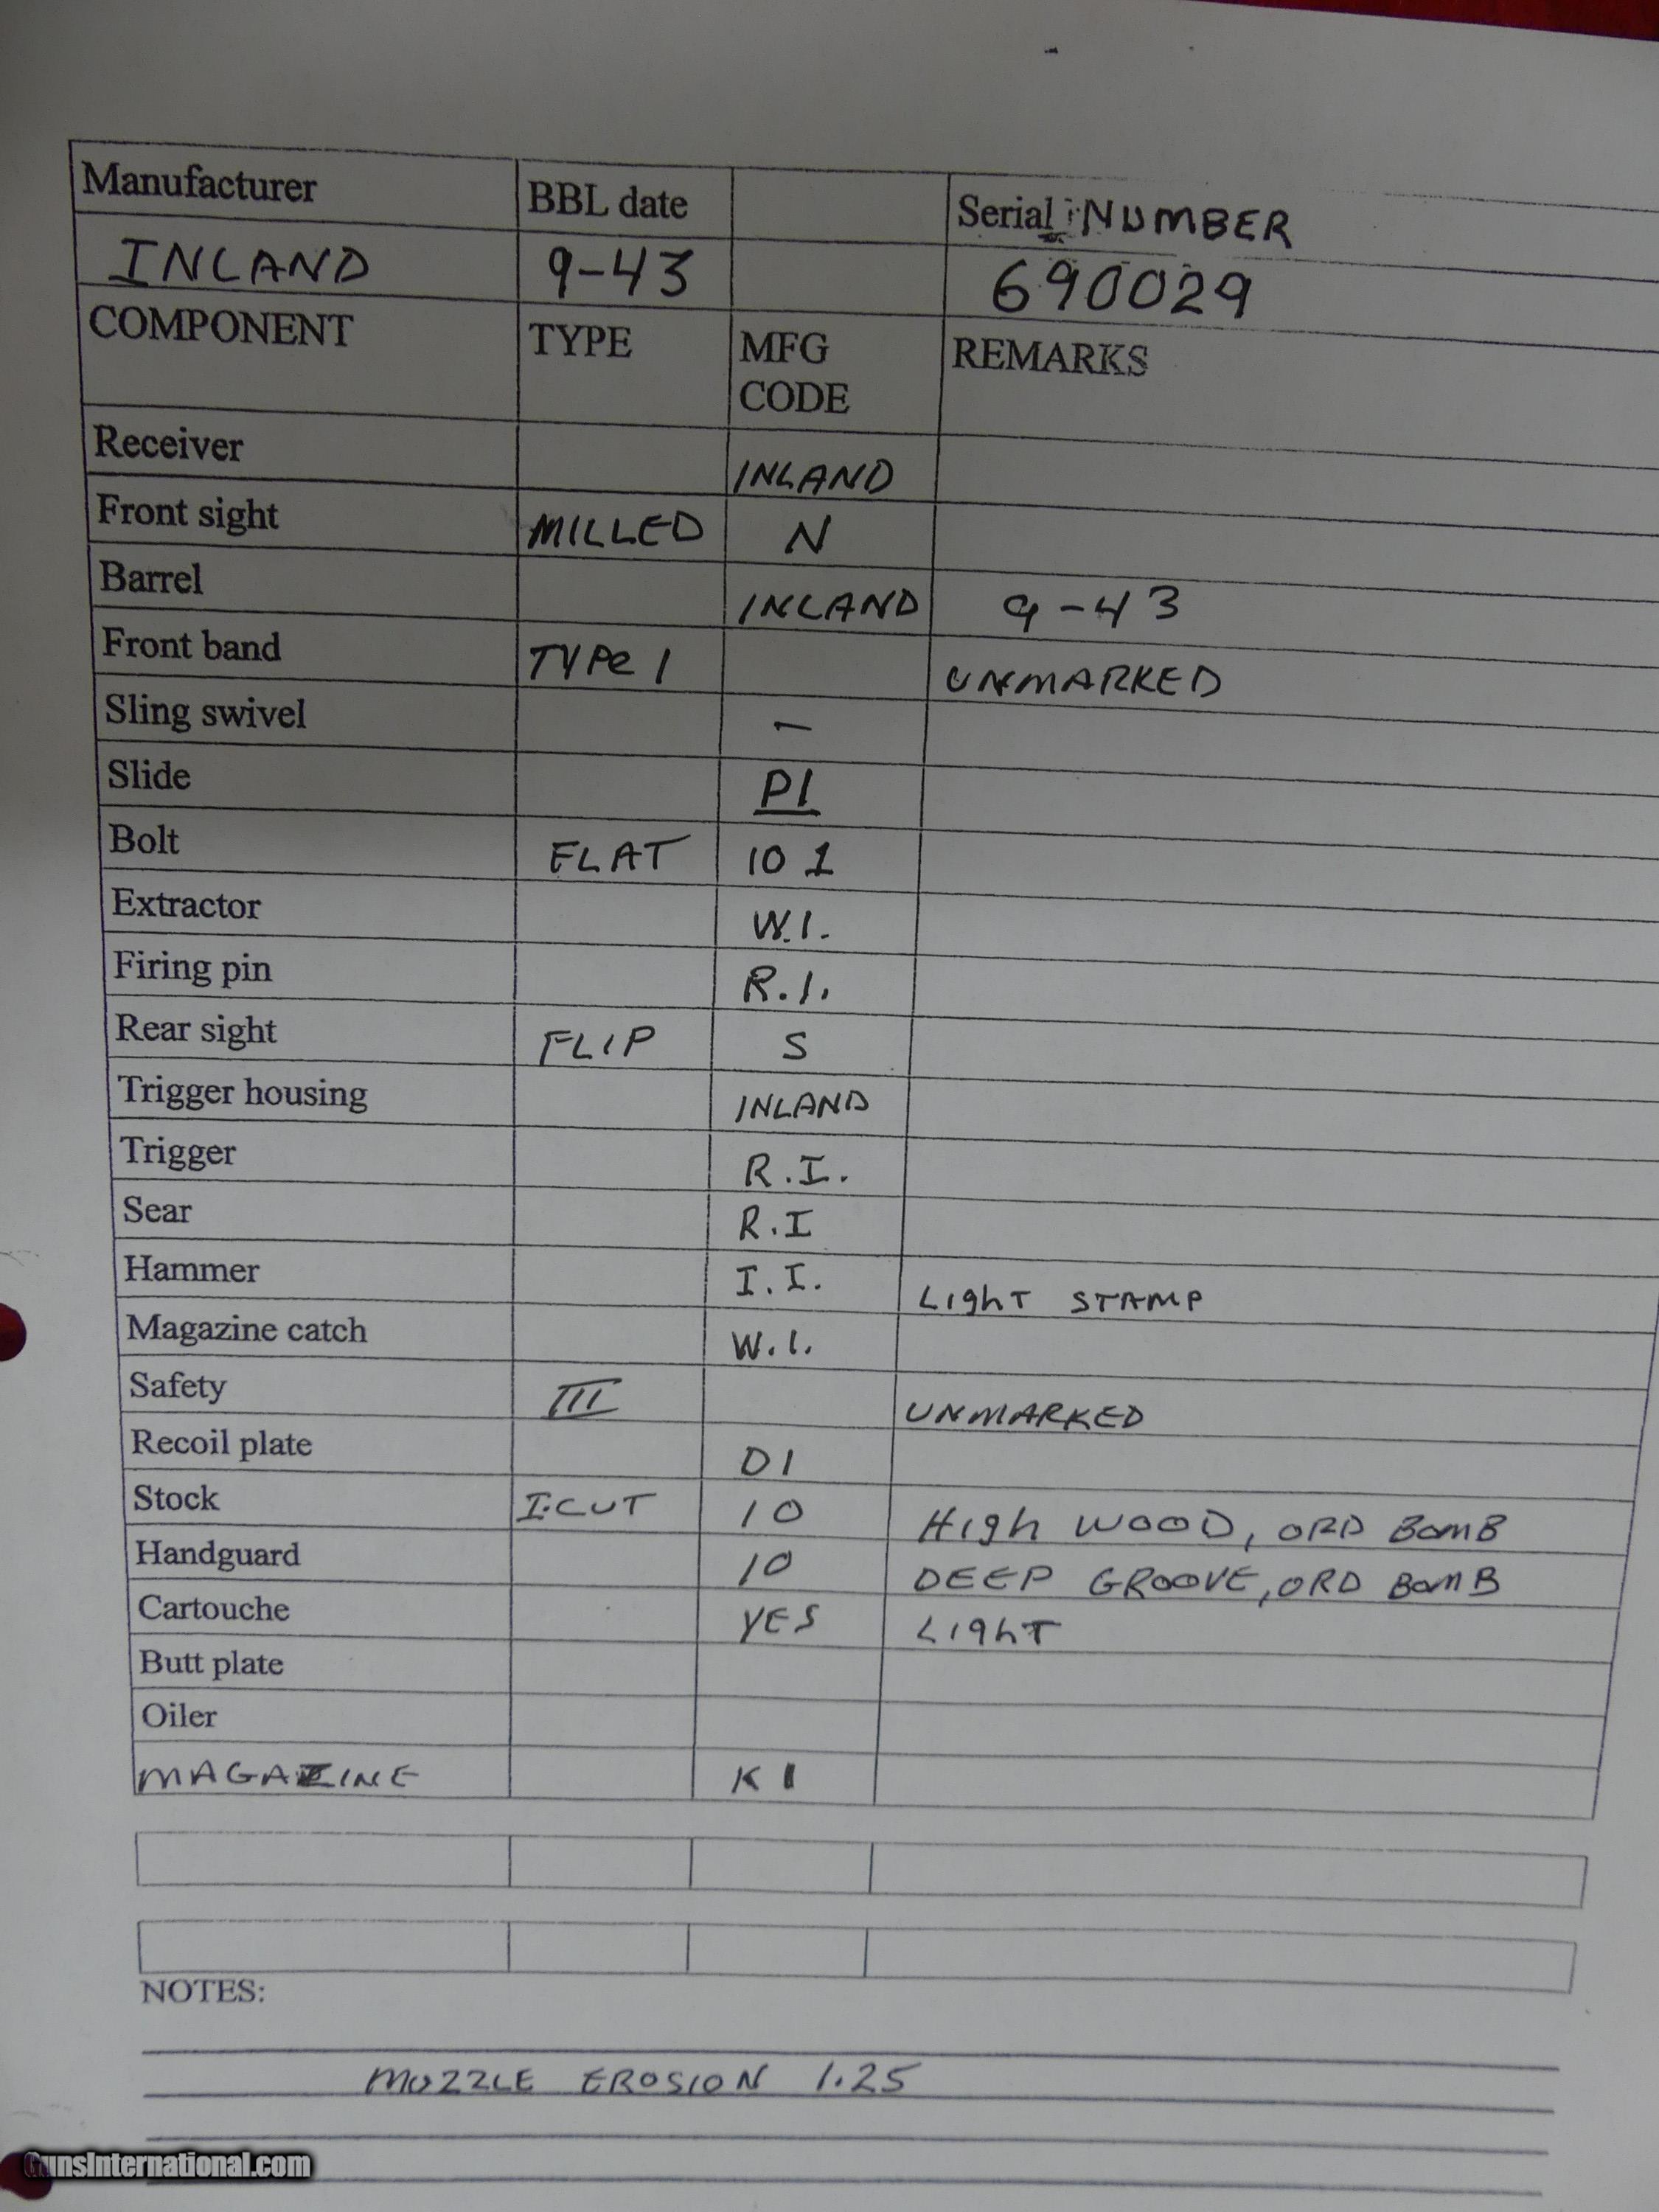 Manufacturer BBL date Serial NUMBER
INLAND 9-43 690029
COMPONENT TYPE MFG CODE REMARKS
Receiver INLAND
Front sight MILLED N
Barrel INLAND 9-43
Front band TYPE 1 UNMARKED
Sling swivel –
Slide PI
Bolt FLAT IO I
Extractor W.I.
Firing pin R.I.
Rear sight FLIP S
Trigger housing INLAND
Trigger R.I.
Sear R.I
Hammer I.I. LIGHT STAMP
Magazine catch W.I.
Safety III UNMARKED
Recoil plate DI
Stock I-CUT IO HIGH WOOD, ORD BOMB
Handguard IO DEEP GROOVE, ORD BOMB
Cartouche YES LIGHT
Butt plate
Oiler
MAGAZINE KI
NOTES:
MUZZLE EROSION 1.25
GunsInternational.com